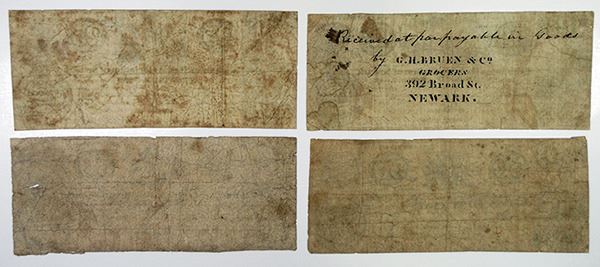 Received at par payable in Goods
by G.H. BRUEN & Co
GROCERS
392 Broad St.
NEWARK.